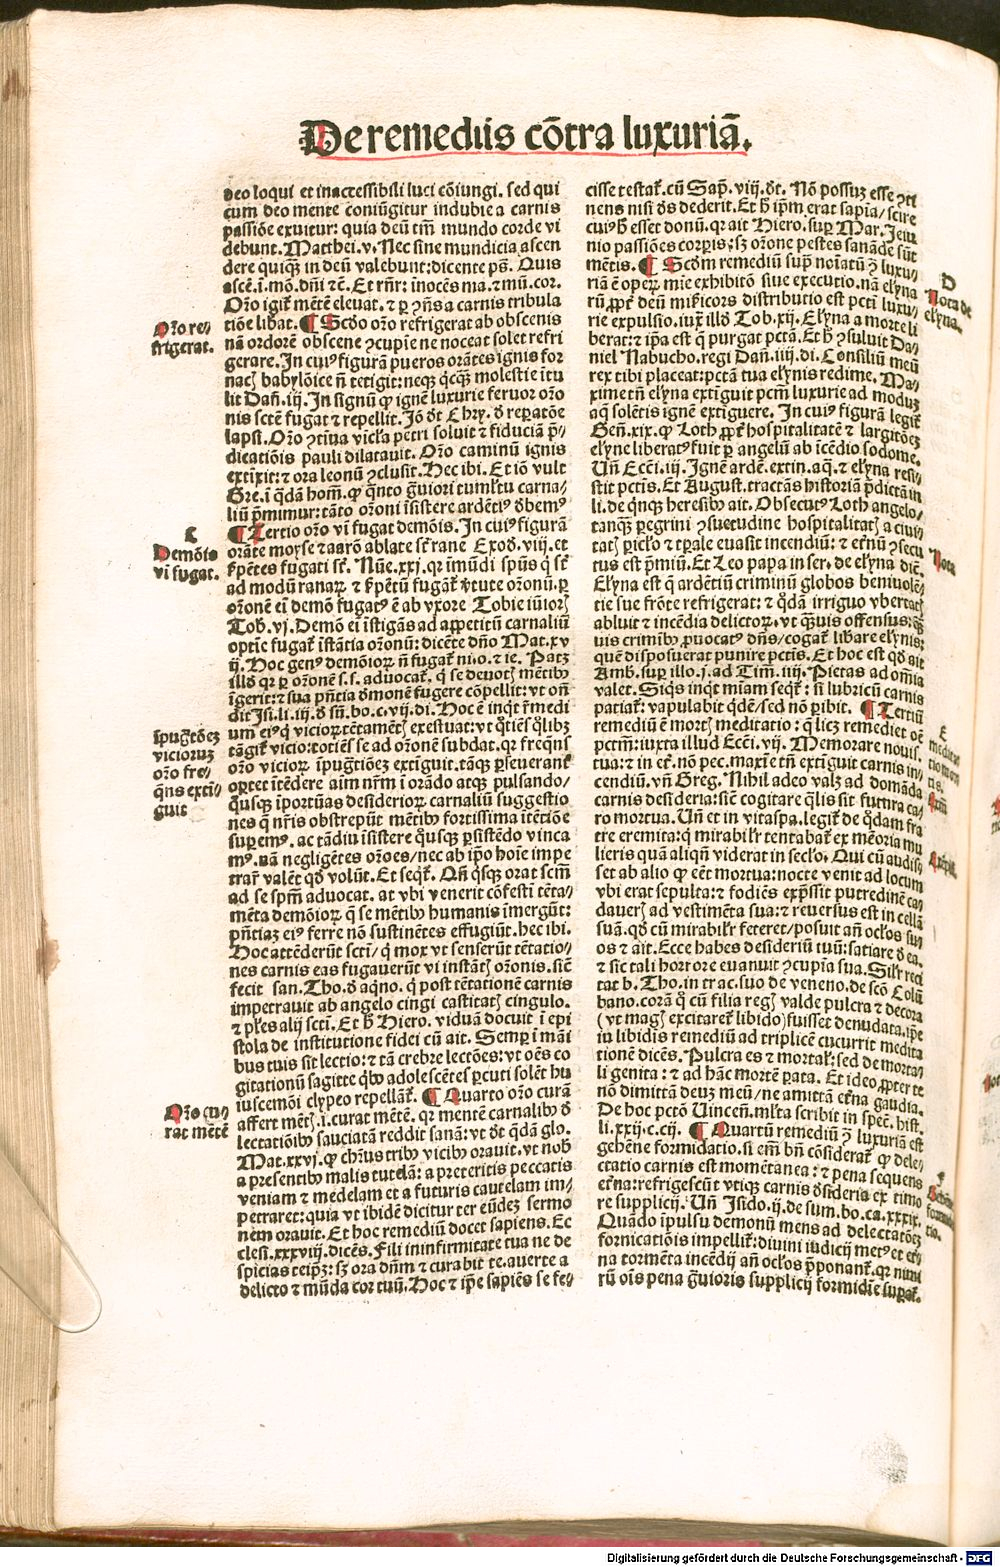 De remediis cōtra luxuriā.
deo loqui et inaccessibili luci cōiungi. sed qui
cum deo mente coniūgitur indubie a carnis
passiōe exuitur: quia deū tm̄ mundo corde vi
debunt. Matthei. v. Nec sine mundicia ascen
dere quiqꝫ in deū valebunt: dicente ps̄. Quis
ascē. i. mō. dn̄i ⁊c̄. Et rn̄r: inocēs ma. ⁊ mū. cor.
Or̄o igit᷑ mētē eleuat. ⁊ ꝑ ꝯn̄s a carnis tribula
tiōe libat. ¶ Scd̄o or̄o refrigerat ab obscenis
nā ordorē obscene ꝯcupīe ne noceat solet refri
gerare. In cuiꝰ figurā pueros orātes ignis for
nacꝭ babylōice n̄ tetigit: neqꝫ qͥcqꝫ molestie ītu
lit Dan̄. iij. In signū ꝙ ignē luxurie feruor or̄o
nis sctē fugat ⁊ repellit. Jō d̄t Chry. d̓ repatōe
lapsi. Or̄o ꝯtīua vīcl̓a petri soluit ⁊ fiduciā p̄-
dicatiōis pauli dilatauit. Or̄o caminū ignis
extīxit: ⁊ ora leonū ꝯclusit. Hec ibi. Et iō vult
Gre. i q̄dā hom̄. ꝙ qn̄to g̓uiori tuml̓tu carna-
liū p̄mimur: tāto or̄oni īsistere ardētiꝰ d̓bemꝰ
¶ Tertio or̄o vi fugat demōis. In cuiꝰ figurā
orāte moyse ⁊ aarō ablate st̄ rane Exod̓. viij. et
s̓pētes fugati st̄. Nūe. xxj. qr imūdi spūs q̄ st̄
ad modū ranaꝝ ⁊ s̓pētū fugāt᷑ v̓tute or̄onū. ꝑ
or̄onē ei demō fugatꝰ ē ab vxore Tobie iūiorꝭ
Tob. vj. Demō ei īstigās ad appetitū carnaliū
optīe fugat᷑ īstātia or̄onū: dicēte dn̄o Mat. xv
ij. Hoc genꝰ demōioꝝ n̄ fugat᷑ ni. o. ⁊ ie. Patꝫ
illd̓ qr ꝑ or̄onē s. s. aduocat᷑. q̄ se deuotꝭ mētibꝰ
īgerit: ⁊ sua pn̄tia d̓monē fugere cōpellit: vt on̄
dit Jsi. li. iij. d̓ sū. bo. c. vij. di. Hoc ē inqͭ r̄medi
um eiꝰ q̄ vicioꝝ tētamētꝭ exestuat: vt qͦtiēs qͦlibꝫ
tāgit᷑ vicio: totiēs se ad or̄onē subdat. qr freqn̄s
or̄o vicioꝝ īpugtiōes extīguit. tāqͣ perseuerant᷑
oportet ītēdere aīm nr̄m ī orādo atqꝫ pulsando/
qͦusqꝫ īportūas desiderioꝝ carnaliū suggestio
nes q̄ nr̄is obstrepūt mētibꝰ fortissima ītētiōe
suꝑemꝰ. ac tādiu īsistere qͦusqꝫ ꝑsistēdo vinca
mꝰ. nā negligētes or̄oes/ nec ab ipō hoīe impe
trar̄ valēt qd̓ volūt. Et seqͥt᷑. Qn̄ qͥsqꝫ orat sctm̄
ad se spm̄ aduocat. at vbi venerit cōfesti tēta-
mēta demōioꝝ q̄ se mētibꝰ humanis īmergūt:
pn̄tiaꝫ eiꝰ ferre nō sustinētes effugiūt. hec ibi.
Hoc attēderūt sctī/ qͥ mox vt senserūt tētatio-
nes carnis eas fugauerūt vi instātꝭ or̄onis. sic̄
fecit san. Tho. d̓ aqͥno. qͥ post tētationē carnis
impetrauit ab angelo cingi castitatꝭ cingulo.
⁊ pl̓es alij sctī. Et h̓ Hiero. viduā docuit ī epi
stola de institutione fidei cū ait. Semꝑ ī mai
bus tuis sit lectio: ⁊ tā crebre lectōes: vt oēs co
gitationū sagitte qͥbꝰ adolescētes ꝑcuti solēt hu
iuscemōi clypeo repellāt᷑. ¶ Quarto or̄o curā
affert mētꝭ. i. curat mētē. qr mentē carnalibꝰ d̓
lectatiōibꝰ sauciatā reddit sanā: vt d̓t q̄dā glo.
Mat. xxvj. ꝙ chr̄us tribꝰ vicibꝰ orauit. vt nob̓
a presentibꝰ malis tutelā: a preteritis peccatis
veniam ⁊ medelam et a futuris cautelam im-
petraret: quia vt ibidē dicitur ter eūdeꝫ sermo
nem orauit. Et hoc remediū docet sapiens. Ec
clesi. xxxviij. dicēs. Fili in infirmitate tua ne de
spicias teipꝫ: sꝫ ora dn̄m ⁊ curabit te. auerte a
delicto ⁊ mūda cor tuū. Hoc ⁊ ip̄e sapiēs se fe-
cisse testat᷑. cū Sap̄. viij. d̓t. Nō possuꝫ esse ꝯti
nens nisi d̓s dederit. Et h̓ ip̄m erat sapīa/ scire
cuiꝰ h̓ esset donū. qr ait Hiero. suꝑ Mar. Jeiu
nio passiōes corꝑis: sꝫ or̄one pestes sanāde sūt
mētis. ¶ Scd̄m remediū sup̄ noīatū ꝯ luxu-
riā ē operꝝ mie exhibitō siue executio. nā elȳna
rū ꝓpt̓ deū mis̓icors distributio est pctī luxu-
rie expulsio. iux̄ illd̓ Tob. xij. Elȳna a morte li
berat: ⁊ ip̄a est q̄ purgat pctā. Et h̓ ꝯsuluit Da-
niel Nabucho. regi Dan̄. iiij. di. Consiliū meū
rex tibi placeat: pctā tua elȳnis redime. Ma-
xime tn̄ elȳna extīguit pctm̄ luxurie ad moduꝫ
aq̄ solētis ignē extīguere. In cuiꝰ figurā legit᷑
Gen̄. xix. ꝙ Loth ꝓpt̓ hospitalitatē ⁊ largitōeꝫ
elȳne liberatꝰ fuit ꝑ angelū ab īcēdio sodome.
Un̄ Eccī. iij. Ignē ardē. extin. aq̄. ⁊ elȳna resi-
stit pctīs. Et August. tractās historiā p̄dictā in
li. de qͥnqꝫ heresibꝰ ait. Obsecutꝰ Loth angelo-
tanqͣꝫ ꝑegrini ꝯsuetudine hospitalitatꝭ a ciui-
tatꝭ ꝑicl̓o ⁊ tꝑale euasit incendiū: ⁊ et̓nū ꝯsecu
tus est p̄miū. Et Leo papa in ser. de elȳna dic̄.
Elȳna est q̄ ardētiū criminū globos beniuolē-
tie sue frōte refrigerat: ⁊ qͦdā irriguo vbertatꝭ
abluit ⁊ incēdia delictoꝝ. vt qͣuis offensus: qͣꝫ
uis crimibꝰ ꝓuocatꝰ dn̄s/ cogat᷑ liberare elȳnis:
quē disposuerat punire pctīs. Et hoc est qd̓ ait
Amb. suꝑ illo. j. ad Tim̄. iiij. Pietas ad omīa
valet. Siqͥs inqͭ miam seqͥt᷑: si lubricū carnis
patiat᷑: vapulabit qͥdē/ sed nō ꝑibit. ¶ Tertiū
remediū ē mortꝭ meditatio: q̄ licꝫ remediet oē
pctm̄: iuxta illud Eccī. vij. Memorare nouis.
tua: ⁊ in et̓. nō pec. maxīe tn̄ extīguit carnis in-
cendiū. vn̄ Greg. Nihil adeo valꝫ ad domāda
carnis desideria: sic̄ cogitare qͣlis sit futura ca-
ro mortua. Un̄ et in vitaspa. legit᷑ de qͦdam fra
tre eremita: qͥ mirabil̓r tentabat᷑ ex mēoria mu
lieris quā aliqn̄ viderat in secl̓o. Qui cū audis-
set ab alio ꝙ eēt mortua: nocte venit ad locum
vbi erat sepulta: ⁊ fodiēs exp̄ssit putredinē ca-
dauerꝭ ad vestimēta sua: ⁊ reuersus est in cellā
suā. qd̓ cū mirabil̓r feteret/ posuit an̄ ocl̓os su-
os ⁊ ait. Ecce habes desideriū tuū: satiare d̓ ea.
⁊ sic tali horrore euanuit ꝯcupīa sua. Sil̓r reci
tat b. Tho. in trac. suo de veneno. de scō Colū
bano. corā qͦ cū filia regꝭ valde pulcra ⁊ decora
(vt magꝭ excitaret᷑ libido) fuisset denudata. ip̄e
iu libidis remediū ad triplicē cucurrit medita
tionē dicēs. Pulcra es ⁊ mortal̓: sed de morta-
li genita: ⁊ ad hāc mortē ꝑata. Et ideo ꝓpter te
nō dimittā deuꝫ meū/ ne amittā et̓na gaudia.
De hoc pctō Vincen̄. ml̓ta scribit in spec̄. hist.
li. xxij. c. cij. ¶ Quartū remediū ꝯ luxuriā est
gehēne formidatio. si em̄ bn̄ cōsiderat᷑ ꝙ dele-
ctatio carnis est momētanea: ⁊ pena sequens
et̓na: refrigescūt vtiqꝫ carnis d̓sideria ex timo
re supplicij. Un̄ Jsido. ij. de sum. bo. ca. xxxix.
Quādo īpulsu demonū mens ad delectatōeꝫ
fornicatiōis impellit᷑: diuini iudicij metꝰ et et̓-
na tormēta incēdij an̄ ocl̓os p̄ponant᷑. qr nimi
rū oīs pena g̓uioris supplicij formidīe suꝑat᷑.
Or̄o re-
frigerat.
C
Demōis
vi fugat.
īpugtōeꝫ
vicioruꝫ
or̄o fre-
qn̄s extī-
guit
Or̄o cu-
rat mētē
D
Nota de
elȳna.
Nota
E
meditat
tio mor
tis.
F
Gehēne
formida
tio.
Digitalisierung gefördert durch die Deutsche Forschungsgemeinschaft - DFG